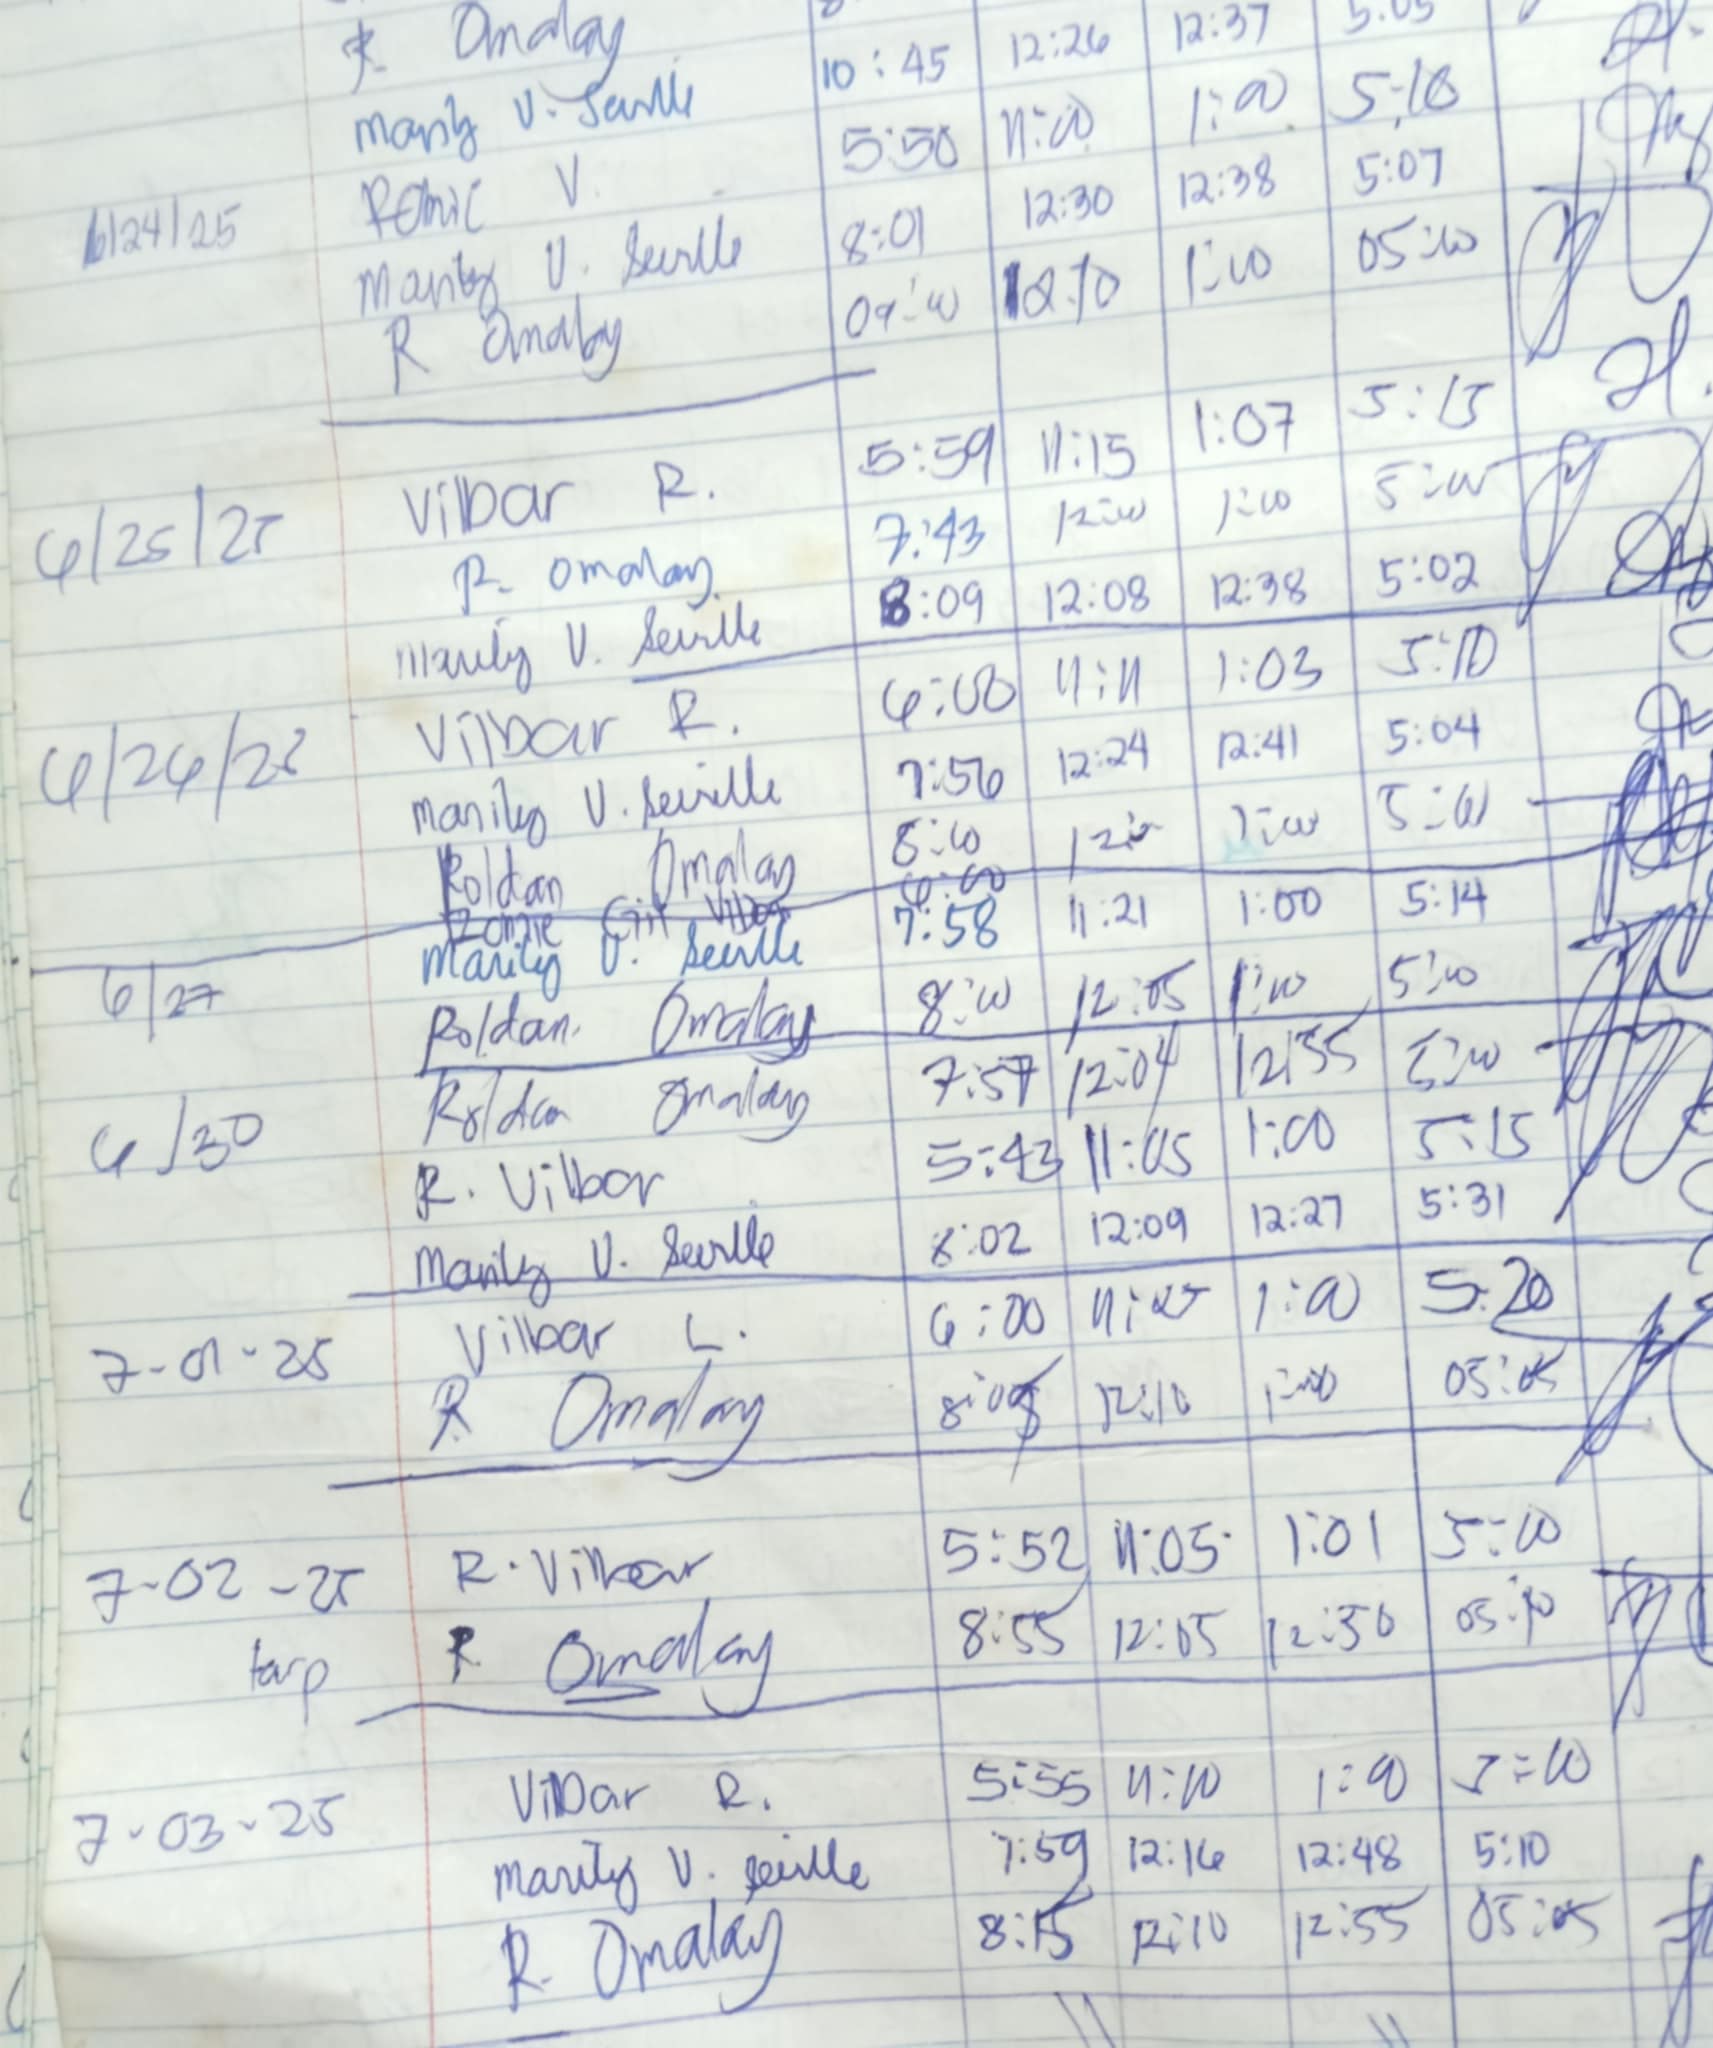 R. Omalay 12:26 12:37 5:05
Marily V. Seville 10:45 11:00 1:00 5:10
Romic V. 5:50 12:30 12:38 5:07
6/24/25 Marily V. Seville 8:01 1:00 05:00
R Omalay 09:00
6/25/25 Vilbar R. 5:59 11:15 1:07 5:15
R. Omalay 7:43 12:00 1:00 5:00
Marily V. Seville 8:09 12:08 12:38 5:02
6/26/25 Vilbar R. 6:00 11:11 1:03 5:10
Marily V. Seville 7:56 12:24 12:41 5:04
Roldan Omalay 8:00 1:00 5:00
6:00
6/27 Marily V. Seville 7:58 11:21 1:00 5:14
Roldan Omalay 8:00 12:05 1:00 5:00
6/30 Roldan Omalay 7:57 12:04 12:55 5:00
R. Vilbar 5:43 11:05 1:00 5:15
Marily V. Seville 8:02 12:09 12:27 5:31
7-01-25 Vilbar L. 6:00 1:00 5:20
R. Omalay 12:10 1:00 05:05
7-02-25 R. Vilbar 5:52 11:05 1:01 5:00
tarp R. Omalay 8:55 12:05 12:50 05:10
7-03-25 Vilbar R. 5:55 11:10 1:00 5:10
Marily V. Seville 7:59 12:16 12:48 5:10
R. Omalay 8:15 12:10 12:55 05:05